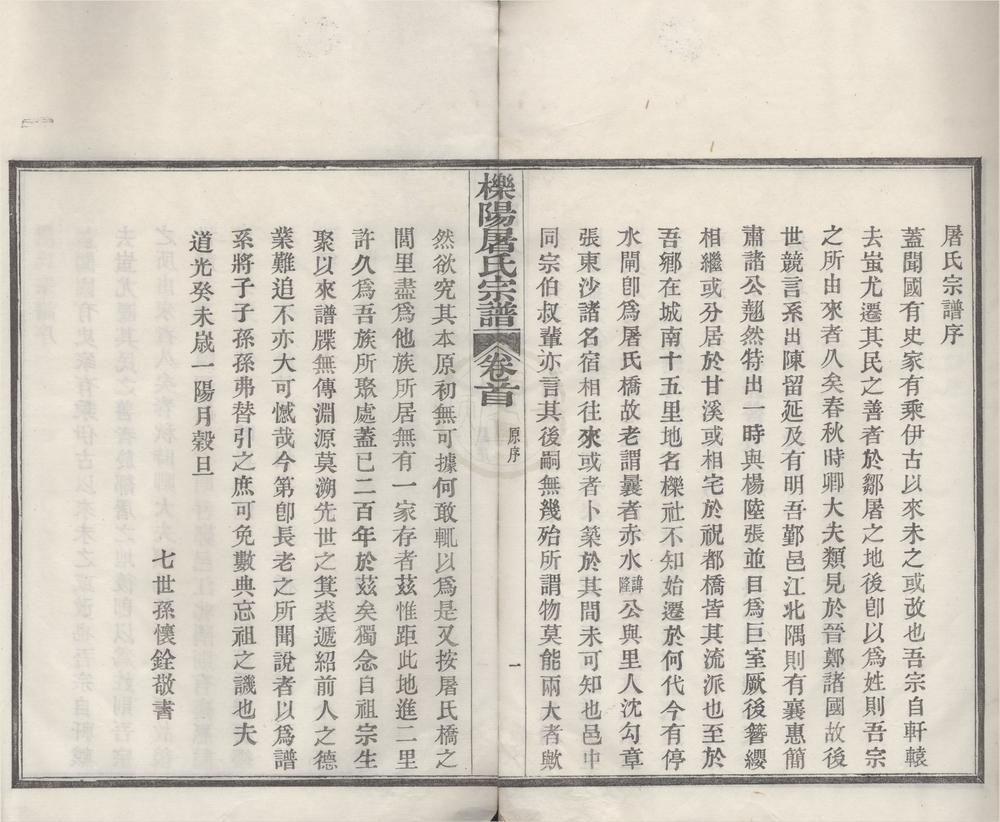 屠氏宗譜序
蓋聞國有史家有乘伊古以來未之或改也吾宗自軒轅
去蚩尤遷其民之善者於鄒屠之地後卽以爲姓則吾宗
之所由來者久矣春秋時卿大夫類見於晉鄭諸國故後
世競言系出陳留延及有明吾鄞邑江北隅則有襄惠簡
肅諸公翹然特出一時與楊陸張並目爲巨室厥後簪纓
相繼或分居於甘溪或相宅於祝都橋皆其流派也至於
吾鄉在城南十五里地名櫟社不知始遷於何代今有停
水閘卽爲屠氏橋故老謂曩者赤水諱隆公與里人沈勾章
張東沙諸名宿相往來或者卜築於其間未可知也邑中
同宗伯叔輩亦言其後嗣無幾殆所謂物莫能兩大者歟
櫟陽屠氏宗譜 卷首 原序 一
然欲究其本原初無可據何敢輒以爲是又按屠氏橋之
閭里盡爲他族所居無有一家存者茲惟距此地進二里
許久爲吾族所聚處蓋已二百年於茲矣獨念自祖宗生
聚以來譜牒無傳淵源莫溯先世之箕裘遞紹前人之德
業難追不亦大可憾哉今第卽長老之所聞說者以爲譜
系將子子孫孫弗替引之庶可免數典忘祖之譏也夫
道光癸未嵗一陽月穀旦
七世孫懷銓敬書